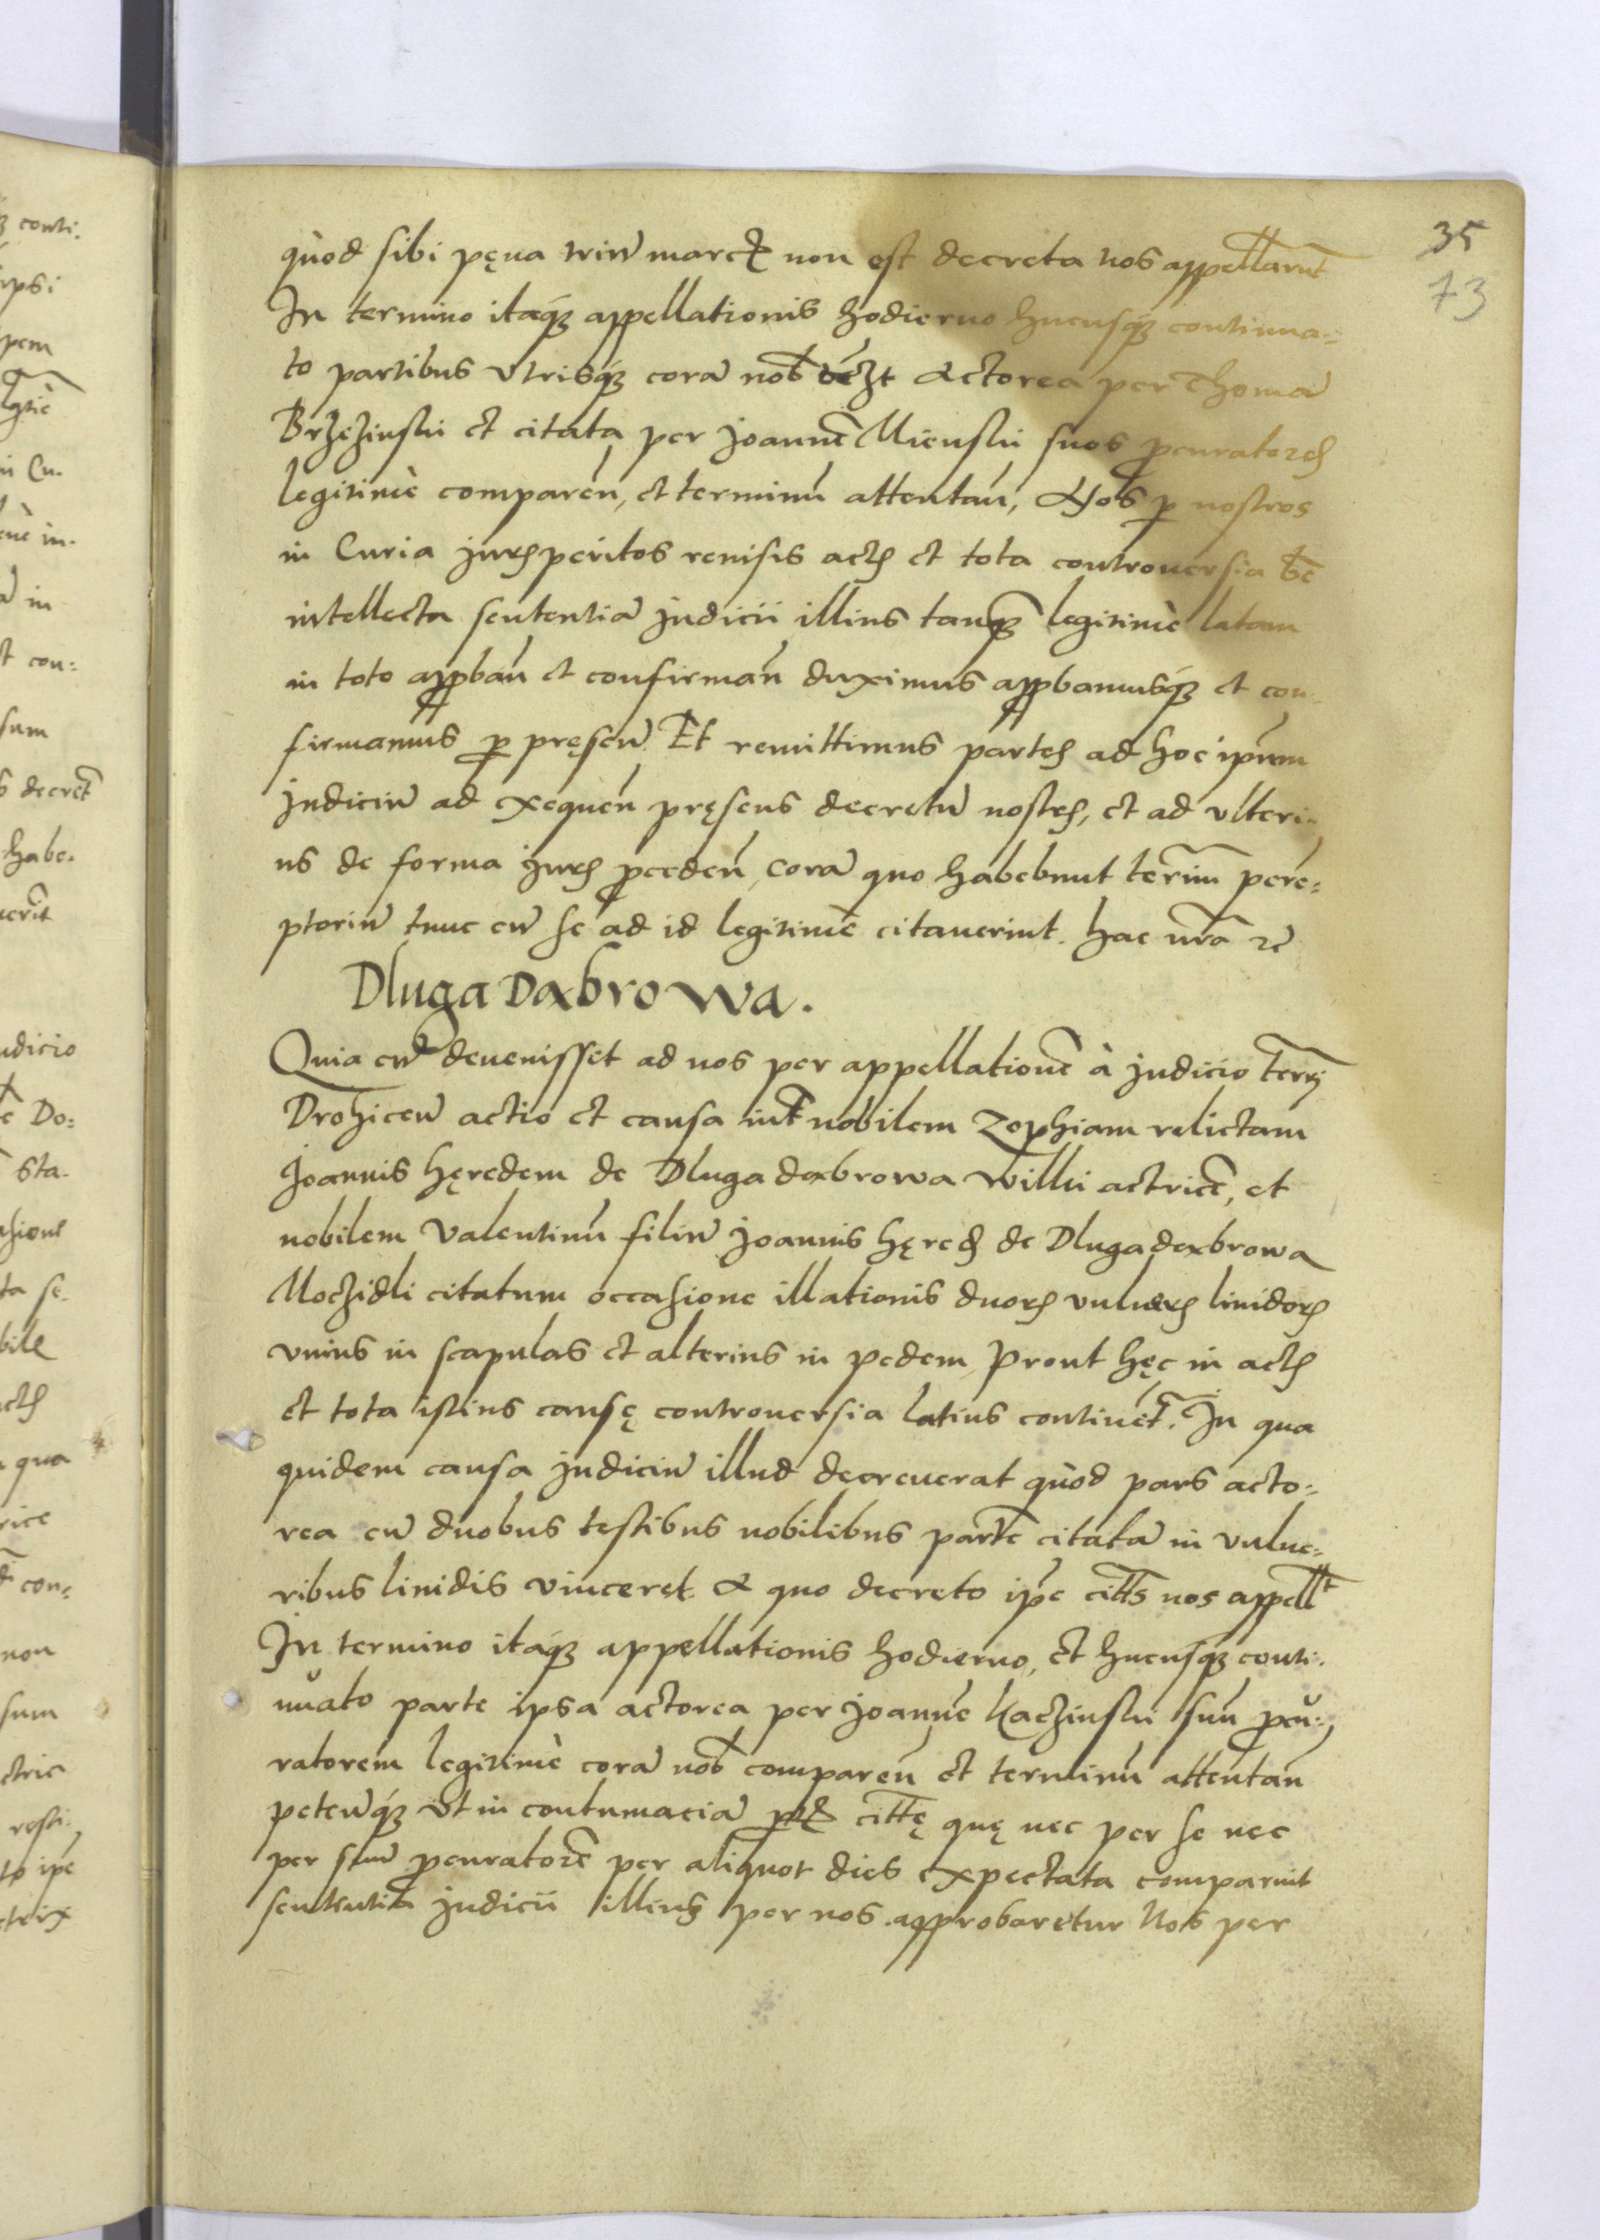 35
73
quòd sibi pęna triũ marcȩ non est decreta nos appellarũt
In termino itaq́ꝫ appellationis hodierno hucusq́ꝫ continua-
to partibus vtrisq́ꝫ corã nob̃ Actorea per Thomã
Brzezinski et citata per Joannẽ Mienski suos ꝓcuratores
legitimè comparen̄, et terminũ attentan̄, Nos ꝑ nostros
in Curia juris peritos reuisis actis et tota controuersia bñ
intellecta sententiã judicii illius tanq̃ legitimè latam
in toto apꝓban̄ et confirman̄ duximus apꝓbamusq́ꝫ et con-
firmamus ꝑ pręsen̄. Et remittimus partes ad hoc ipsum
judiciũ ad exequen̄ pręsens decretũ nostrũ, et ad vlteri-
us de forma juris ꝓceden̄, corã quo habebunt termiñ perẽ-
ptoriũ tunc cũ se ad id legitimè citauerint. hac nrã rẽ
Dluga Dąbrowa.
Quia cũ deuenisset ad nos per appellationẽ à judicio terrȓi
Drohiceñ actio et causa int̃ nobilem Zophiam relictam
Joannis hęredem de Dluga dąbrowa Wilki actricẽ, et
nobilem Valentinũ filiũ Joannis hęredis de Dluga dąbrowa
Moczidli citatum occasione illationis duorũ vulnerũ liuidorũ
vnius in scapulas et alterius in pedem, Prout hęc in actis
et tota istius causę controuersia latius continet̃. In qua
quidem causa judiciũ illud decreuerat quòd pars acto-
rea cũ duobus testibus nobilibus partẽ citatã in vulne-
ribus liuidis vinceret. A quo decreto ip̃e citt̃s nos appell̃t
In termino itaq́ꝫ appellationis hodierno, et hucusq́ꝫ conti-
nuato parte ipsa actorea per Joannẽ Kaczinski suũ ꝓcu-
ratorem legitimè corã nob̃ comparen̄ et terminũ attentan̄
peteñq́ꝫ vt in contumaciã citt̃ę quę nec per se nec
per suũ ꝓcuratorẽ per aliquot dies expectata comparuit
sententia judicii illius per nos approbaretur Nos per